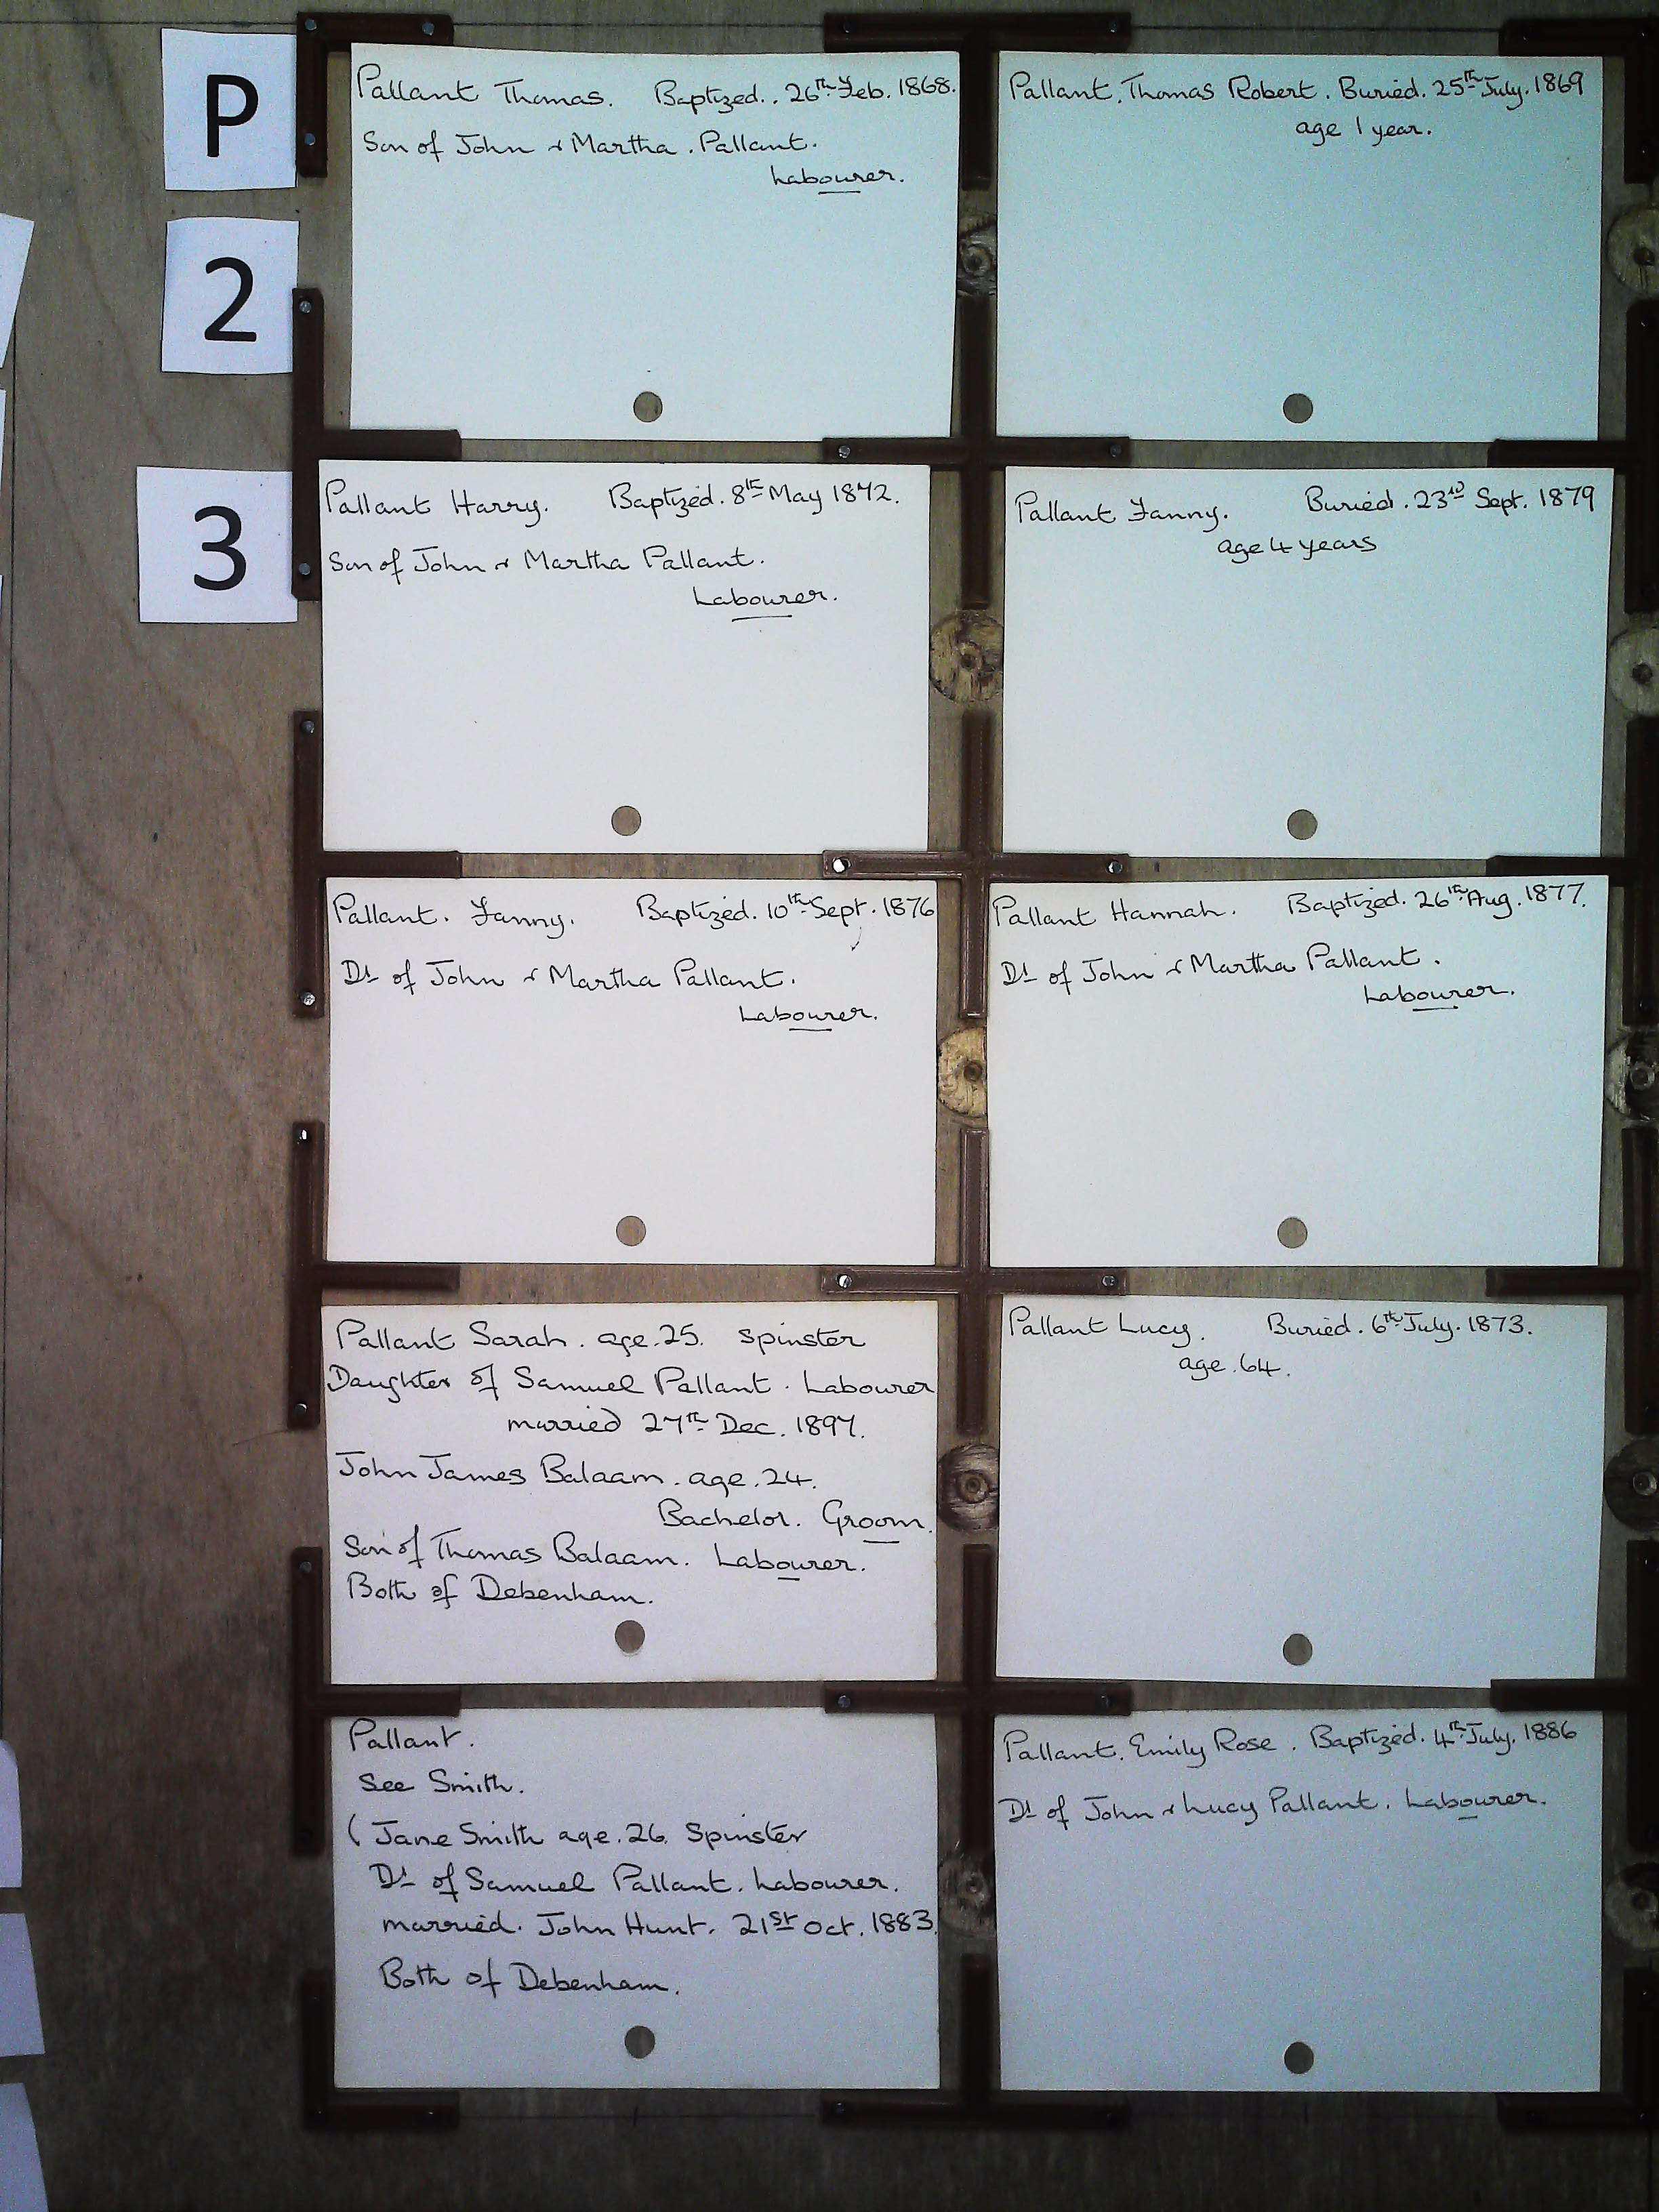 P
2
3
Pallant Thomas. Baptized.. 26th Feb. 1868.
Son of John & Martha. Pallant.
Labourer.
Pallant. Thomas Robert. Buried. 25th July. 1869
age 1 year.
Pallant Harry. Baptized. 8th May 1872.
Son of John & Martha Pallant.
Labourer.
Pallant Fanny. Buried. 23rd Sept. 1879
age 4 years
Pallant. Fanny. Baptized. 10th Sept. 1876
Dt of John & Martha Pallant.
Labourer.
Pallant Hannah. Baptized. 26th Aug. 1877.
Dt of John & Martha Pallant.
Labourer.
Pallant Sarah. age. 25. Spinster
Daughter of Samuel Pallant. Labourer
married 27th Dec. 1897.
John James Balaam. age. 24.
Bachelor. Groom.
Son of Thomas Balaam. Labourer.
Both of Debenham.
Pallant Lucy. Buried. 6th July. 1873.
age. 64.
Pallant.
See Smith.
(Jane Smith age. 26. Spinster
Dt of Samuel Pallant. Labourer.
married. John Hunt. 21st Oct. 1883.
Both of Debenham.
Pallant. Emily Rose. Baptized. 4th July. 1886
Dt of John & Lucy Pallant. Labourer.